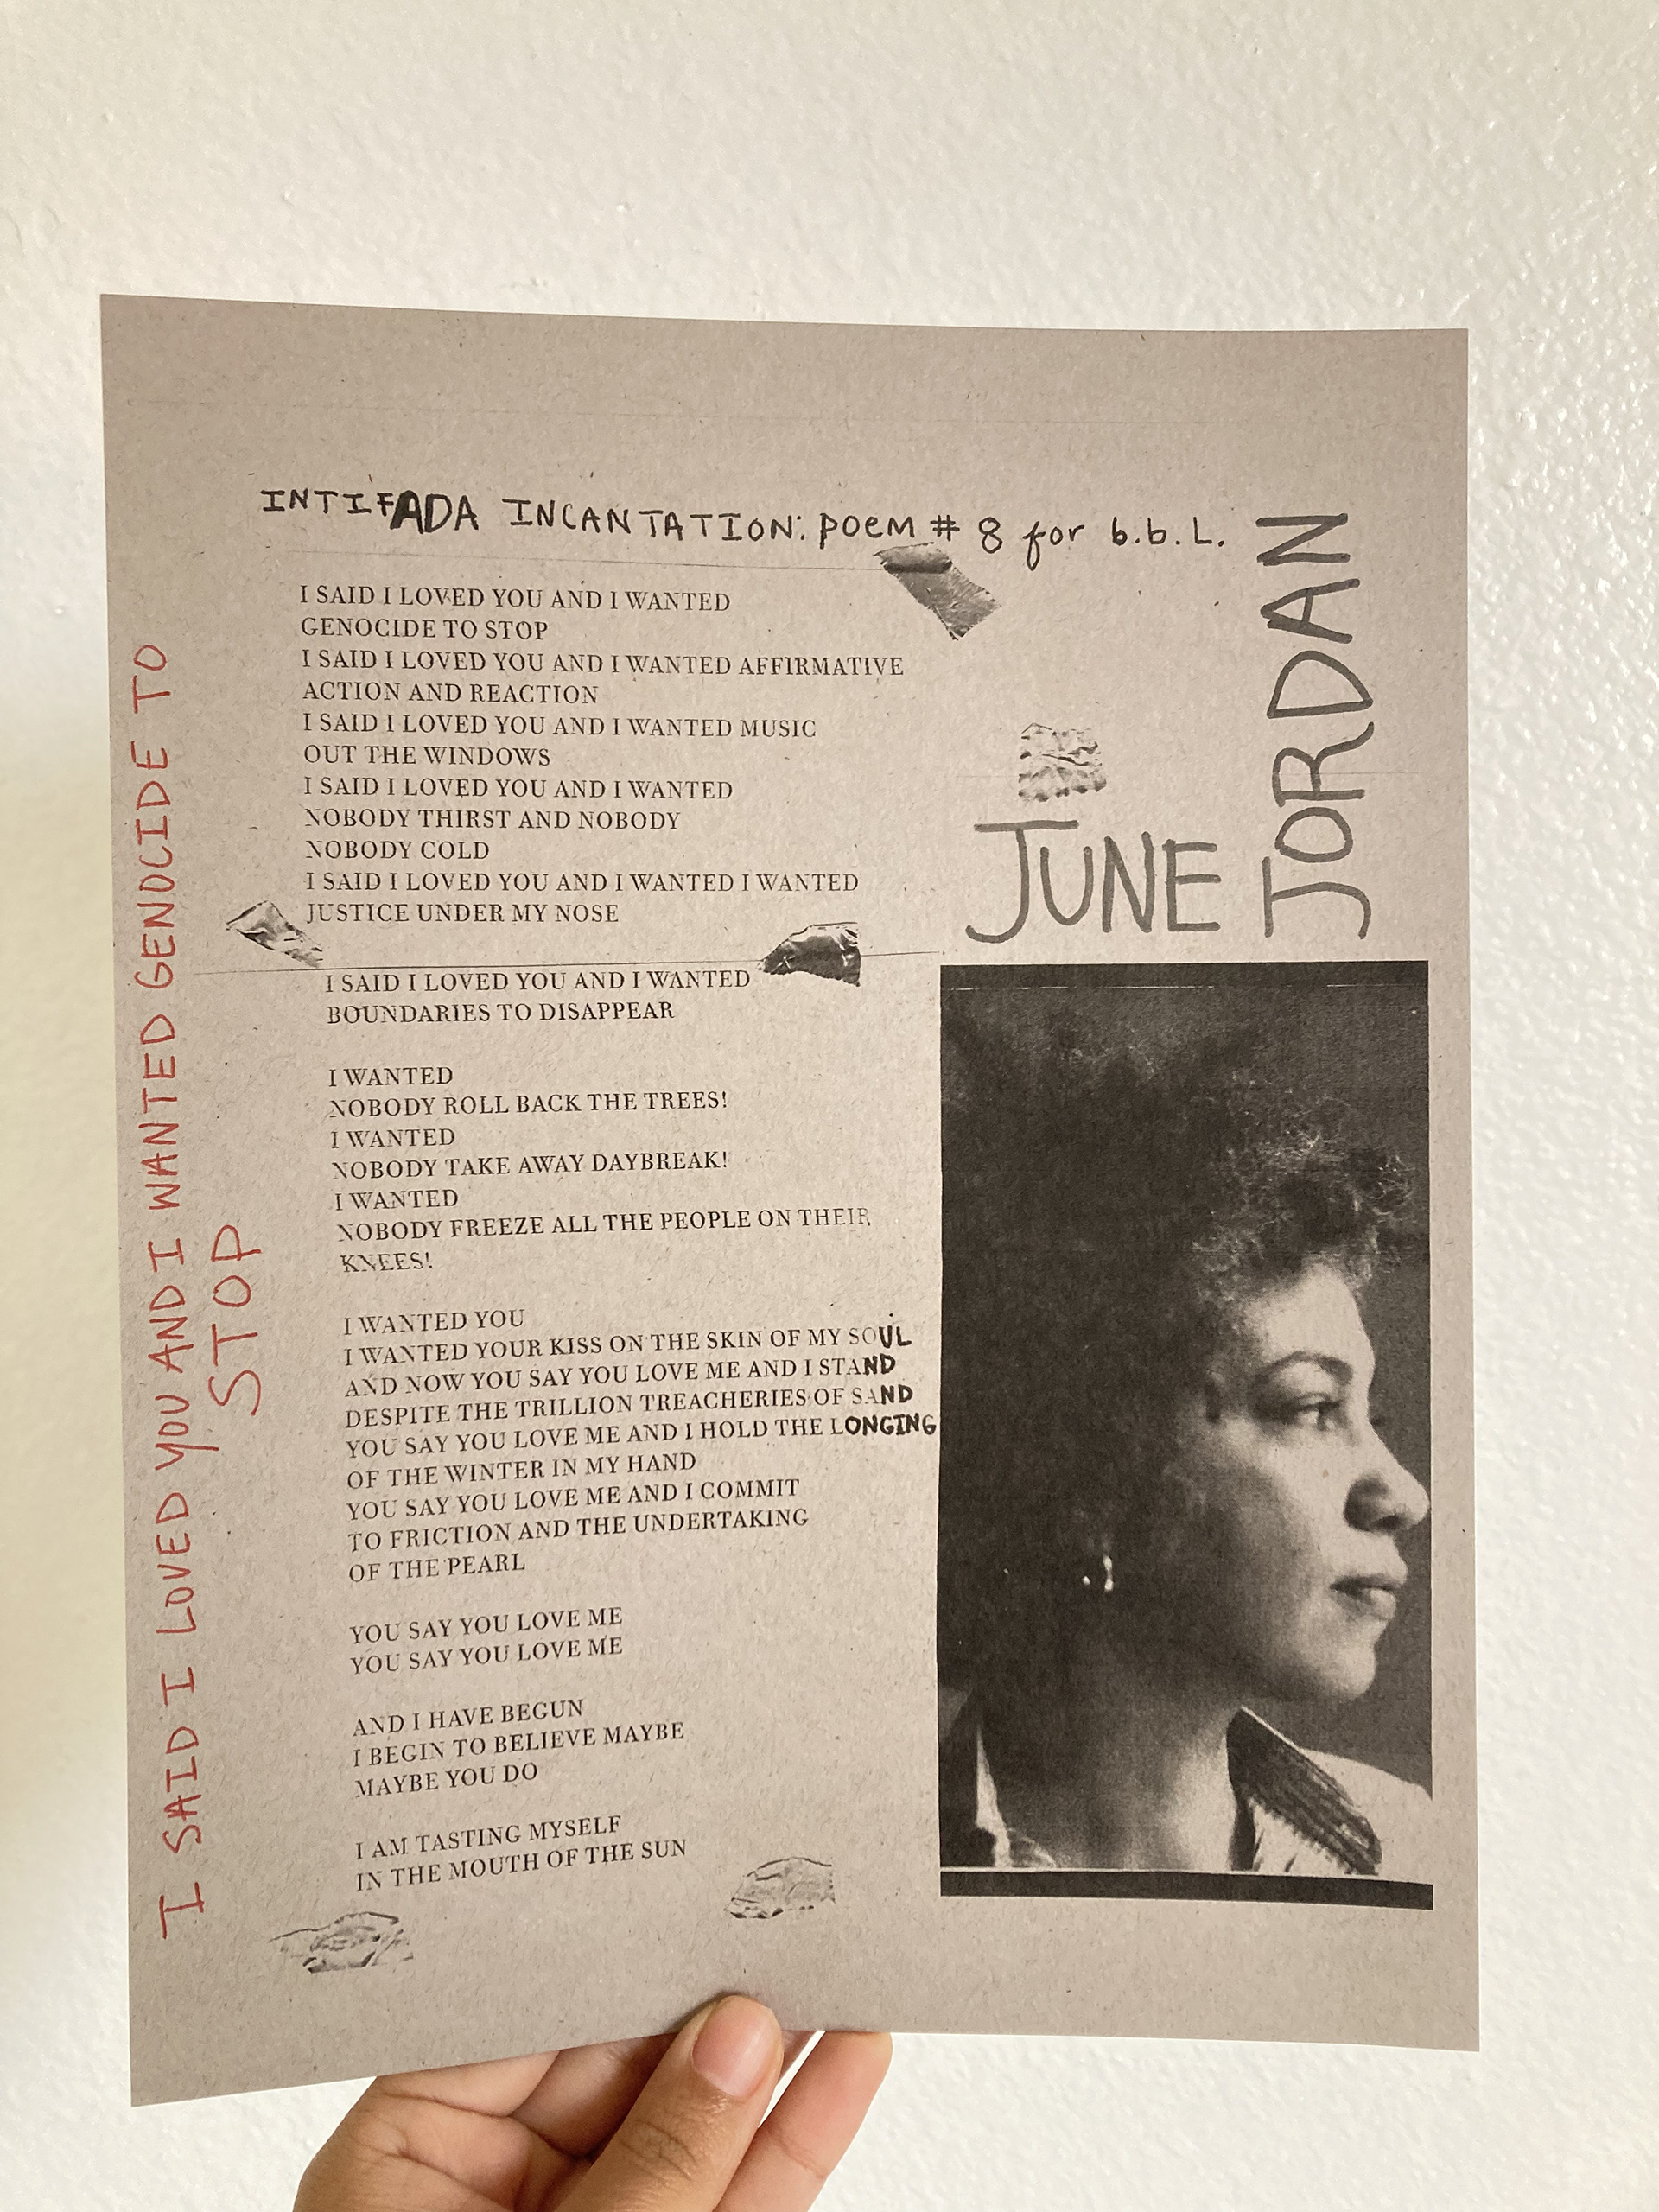 INTIFADA INCANTATION: POEM # 8 for b.b.L.
I SAID I LOVED YOU AND I WANTED
GENOCIDE TO STOP
I SAID I LOVED YOU AND I WANTED AFFIRMATIVE
ACTION AND REACTION
I SAID I LOVED YOU AND I WANTED MUSIC
OUT THE WINDOWS
I SAID I LOVED YOU AND I WANTED
NOBODY THIRST AND NOBODY
NOBODY COLD
I SAID I LOVED YOU AND I WANTED I WANTED
JUSTICE UNDER MY NOSE
I SAID I LOVED YOU AND I WANTED
BOUNDARIES TO DISAPPEAR
I WANTED
NOBODY ROLL BACK THE TREES!
I WANTED
NOBODY TAKE AWAY DAYBREAK!
I WANTED
NOBODY FREEZE ALL THE PEOPLE ON THEIR
KNEES!
I WANTED YOU
I WANTED YOUR KISS ON THE SKIN OF MY SOUL
AND NOW YOU SAY YOU LOVE ME AND I STAND
DESPITE THE TRILLION TREACHERIES OF SAND
YOU SAY YOU LOVE ME AND I HOLD THE LONGING
OF THE WINTER IN MY HAND
YOU SAY YOU LOVE ME AND I COMMIT
TO FRICTION AND THE UNDERTAKING
OF THE PEARL
YOU SAY YOU LOVE ME
YOU SAY YOU LOVE ME
AND I HAVE BEGUN
I BEGIN TO BELIEVE MAYBE
MAYBE YOU DO
I AM TASTING MYSELF
IN THE MOUTH OF THE SUN
JUNE
JORDAN
I SAID I LOVED YOU AND I WANTED GENOCIDE TO
STOP